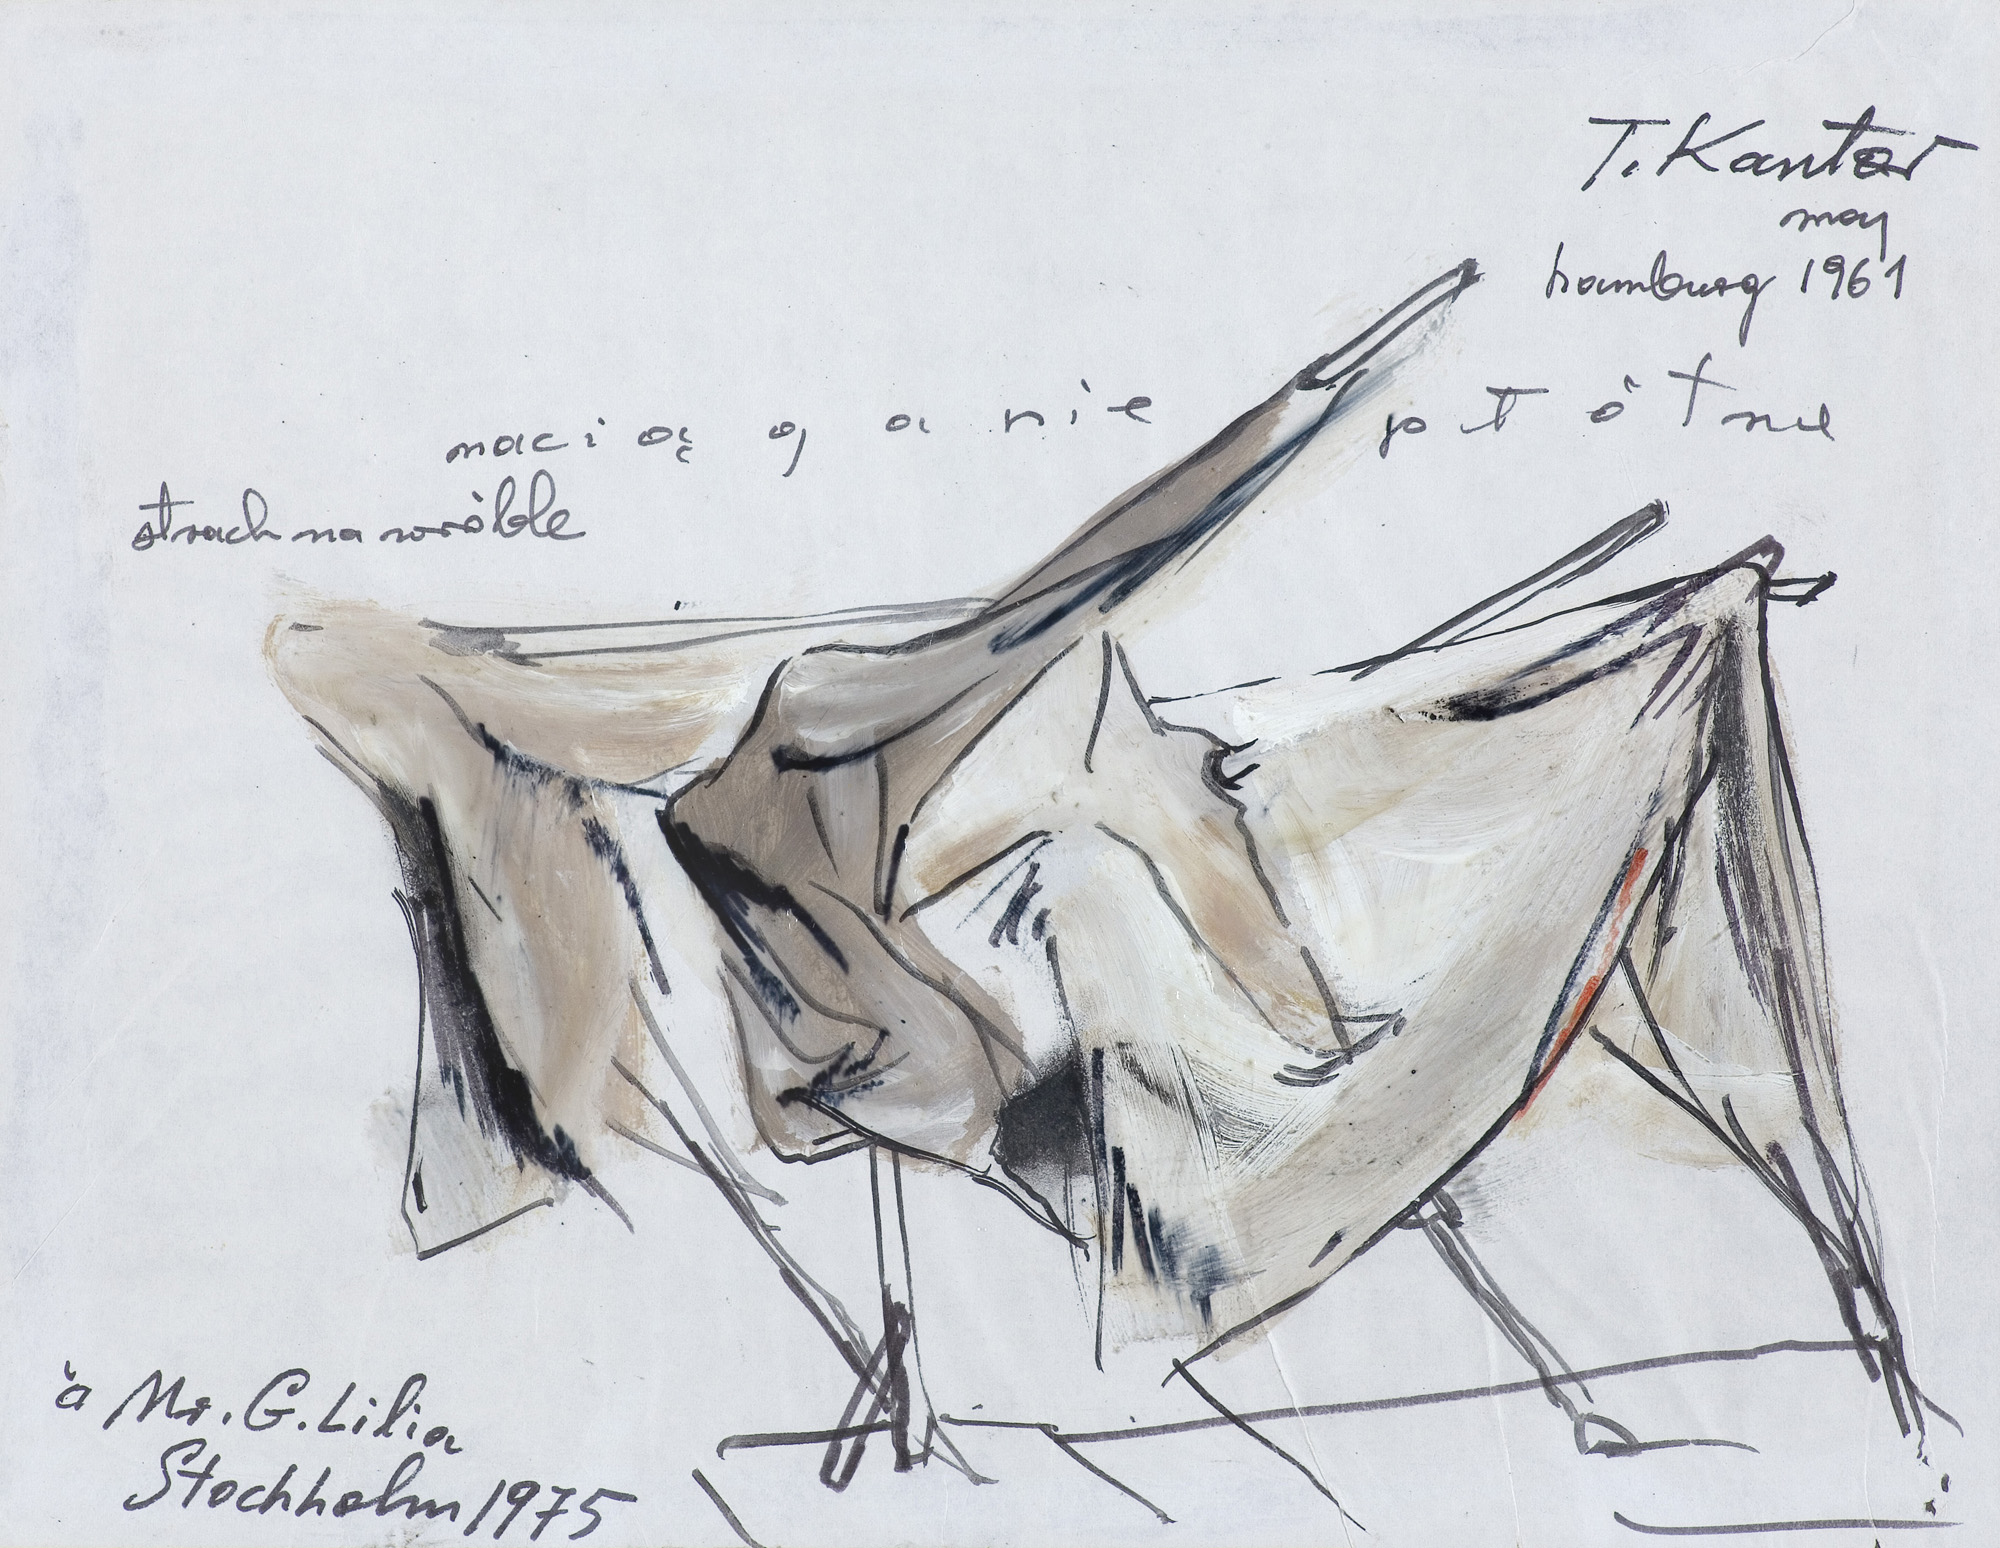 T. Kantor
may
hamburg 1961
naciąganie płótna
strach na wróble
à Mr. G. Lilia
Stockholm 1975